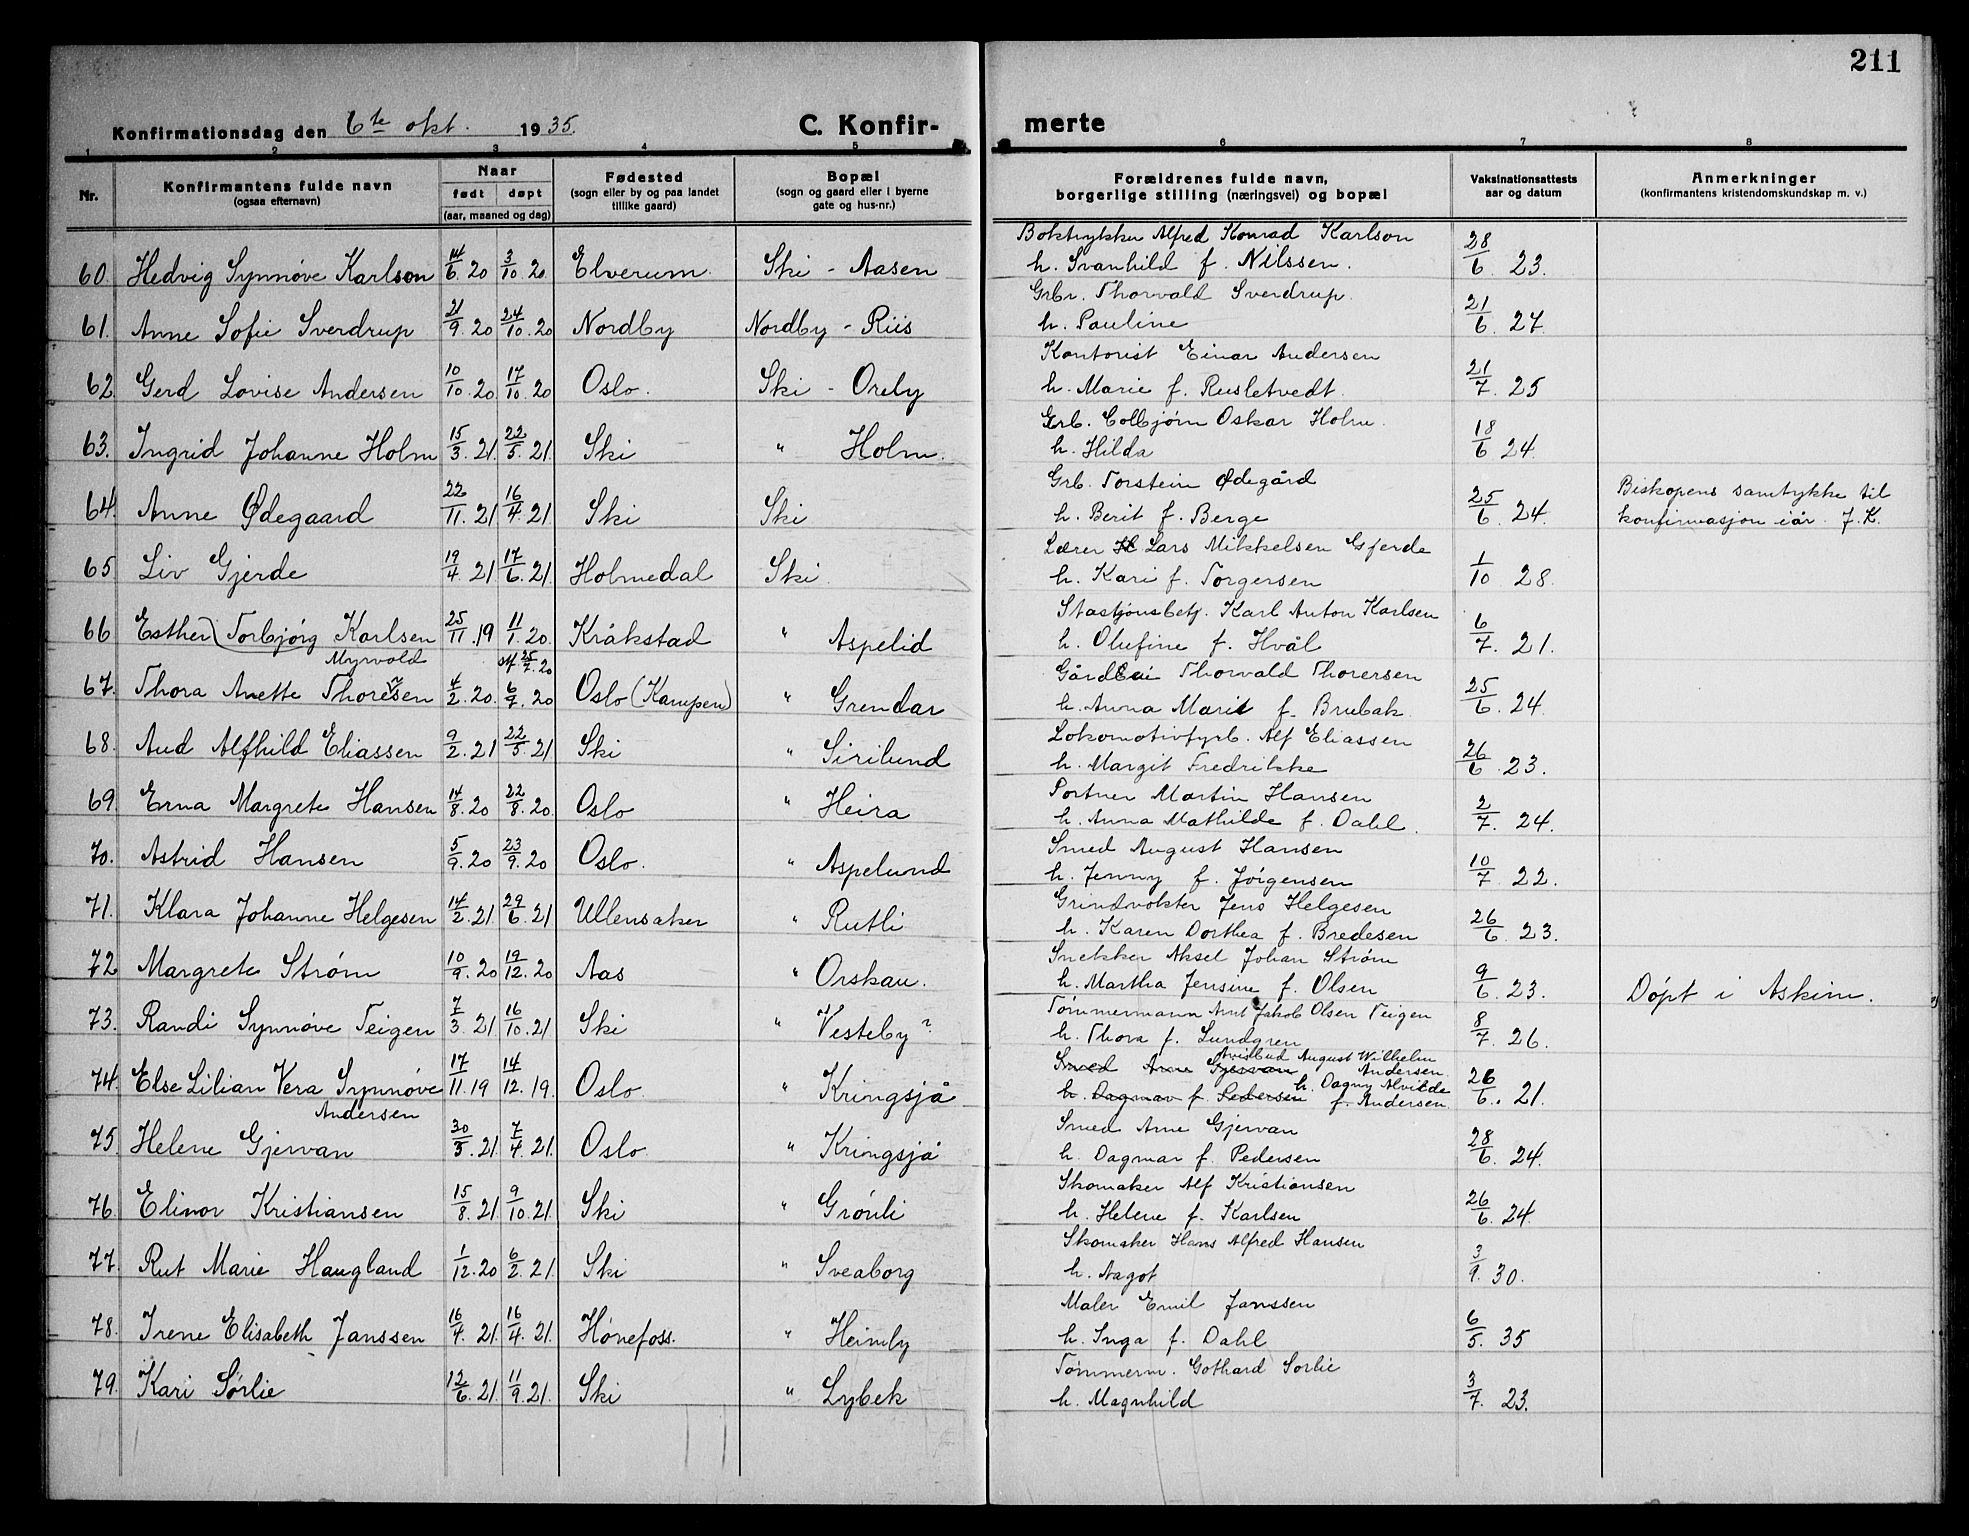 211
Konfirmationsdag den 6te okt. 1935.
C. Konfirmerte
1 2 3 4 5 6 7 8
Nr.
Konfirmantens fulde navn
(ogsaa efternavn)
Naar
født døpt
(aar, maaned og dag)
Fødested
(sogn eller by og paa landet
tillike gaard)
Bopæl
(sogn og gaard eller i byerne
gate og hus-nr.)
Forældrenes fulde navn,
borgerlige stilling (næringsvei) og bopæl
Vaksinationsattests
aar og datum
Anmerkninger
(konfirmantens kristendomskundskap m. v.)
60. Hedvig Synnøve Karlson 14/6.20 3/10.20 Elverum. Ski - Aasen Boktrykker Alfred Konrad Karlson
h. Svanhild f. Nilssen. 28/6. 23.
61. Anne Sofie Sverdrup 21/9.20 24/10.20 Nordby Nordby - Riis Grbr. Thorvald Sverdrup.
h. Pauline 21/6. 27.
62 Gerd Lovise Andersen 10/10.20 17/10.20 Oslo. Ski - Oreby Kontorist Einar Andersen
h. Marie f. Rusletvedt. 21/7. 25
63. Ingrid Johanne Holm 15/3.21. 22/5.21. Ski " Holm. Grb. Colbjørn Oskar Holm.
h. Hilda 18/6 24.
64. Anne Ødegaard 22/11.21 16/4.21 Ski Ski Grb. Torstein Ødegård
h. Berit f. Berge 25/6. 24. Biskopens samtykke til
konfirmasjon i år. J.K.
65 Liv Gjerde 19/4.21 17/6.21. Holmedal Ski. Lærer Lars Mikkelsen Gjerde
h. Kari f. Torgersen 1/10 28.
66 Esther (Torbjørg Karlsen 25/11.19 11/1.20. Kråkstad " Aspelid Stasjonsbetj. Karl Anton Karlsen
h. Olufine f. Hvål 6/7. 21.
Myrvold 25/7.20
67. Thora Anette Thoresen 4/2.20. 6/9.20 Oslo (Kampen) " Grendar Thorvald Thorersen
h. Anna Marit f. Brubak. 25/6. 24.
68. Aud Alfhild Eliassen 9/2.21 22/5.21 Ski " Sirilund Lokomotivfyrb. Alf Eliassen
h. Margit Fredrikke 26/6. 23.
69. Erna Margrete Hansen 14/8.20 22/8.20 Oslo " Heira Portner Martin Hansen
h. Anna Mathilde f. Dahl. 2/7. 24.
70. Astrid Hansen 5/9.20 23/9.20 Oslo. " Aspelund Smed August Hansen
h. Jenny f. Jörgensen 10/7. 22.
71. Klara Johanne Helgesen 14/2.21. 29/6.21 Ullensaker " Rutli Grindvokter Jens Helgesen
h. Karen Dorthea f. Bredesen 26/6. 23.
72 Margrete Strøm 10/9.20 19/12.20 Aas " Orskau. Snekker Aksel Johan Strøm
h. Martha Jensine f. Olsen 9/6. 23. Döpt i Askim.
73. Randi Synnøve Teigen 7/3.21 16/10.21 Ski " Vesteby? Tømmermann Arnt Jakob Olsen Teigen
h. Thora f. Lundgren 8/7. 26.
74. Else Lilian Vera Synnøve
Andersen 17/11.19 14/12.19. Oslo " Kringsjå Smed Arne Gjervan Avisbud August Wilhelm Andersen.
h. Dagmar f. Pedersen h. Dagny Alvilde f. Andersen. 26/6. 21.
75. Helene Gjervan 30/3.21. 7/4.21. Oslo " Kringsjå Smed Arne Gjervan
h. Dagmar f. Pedersen 28/6. 24.
76. Elinor Kristiansen 15/8.21. 9/10.21. Ski " Grönli Skomaker Alf Kristiansen
h. Helene f. Karlsen 26/6. 24.
77. Rut Marie Haugland 1/12.20 6/2.21. Ski " Sveaborg Skomaker Hans Alfred Hansen
h. Aagot 3/9. 30.
78. Irene Elisabeth Janssen 16/4.21. 16/4.21. Hønefoss. " Heimly Maler Emil Janssen
h. Inga f. Dahl 6/5. 35
79. Kari Sørlie 12/6.21. 11/9.21. Ski " Lybek Tømmerm. Gothard Sorlie
h. Magnhild 3/7. 23.